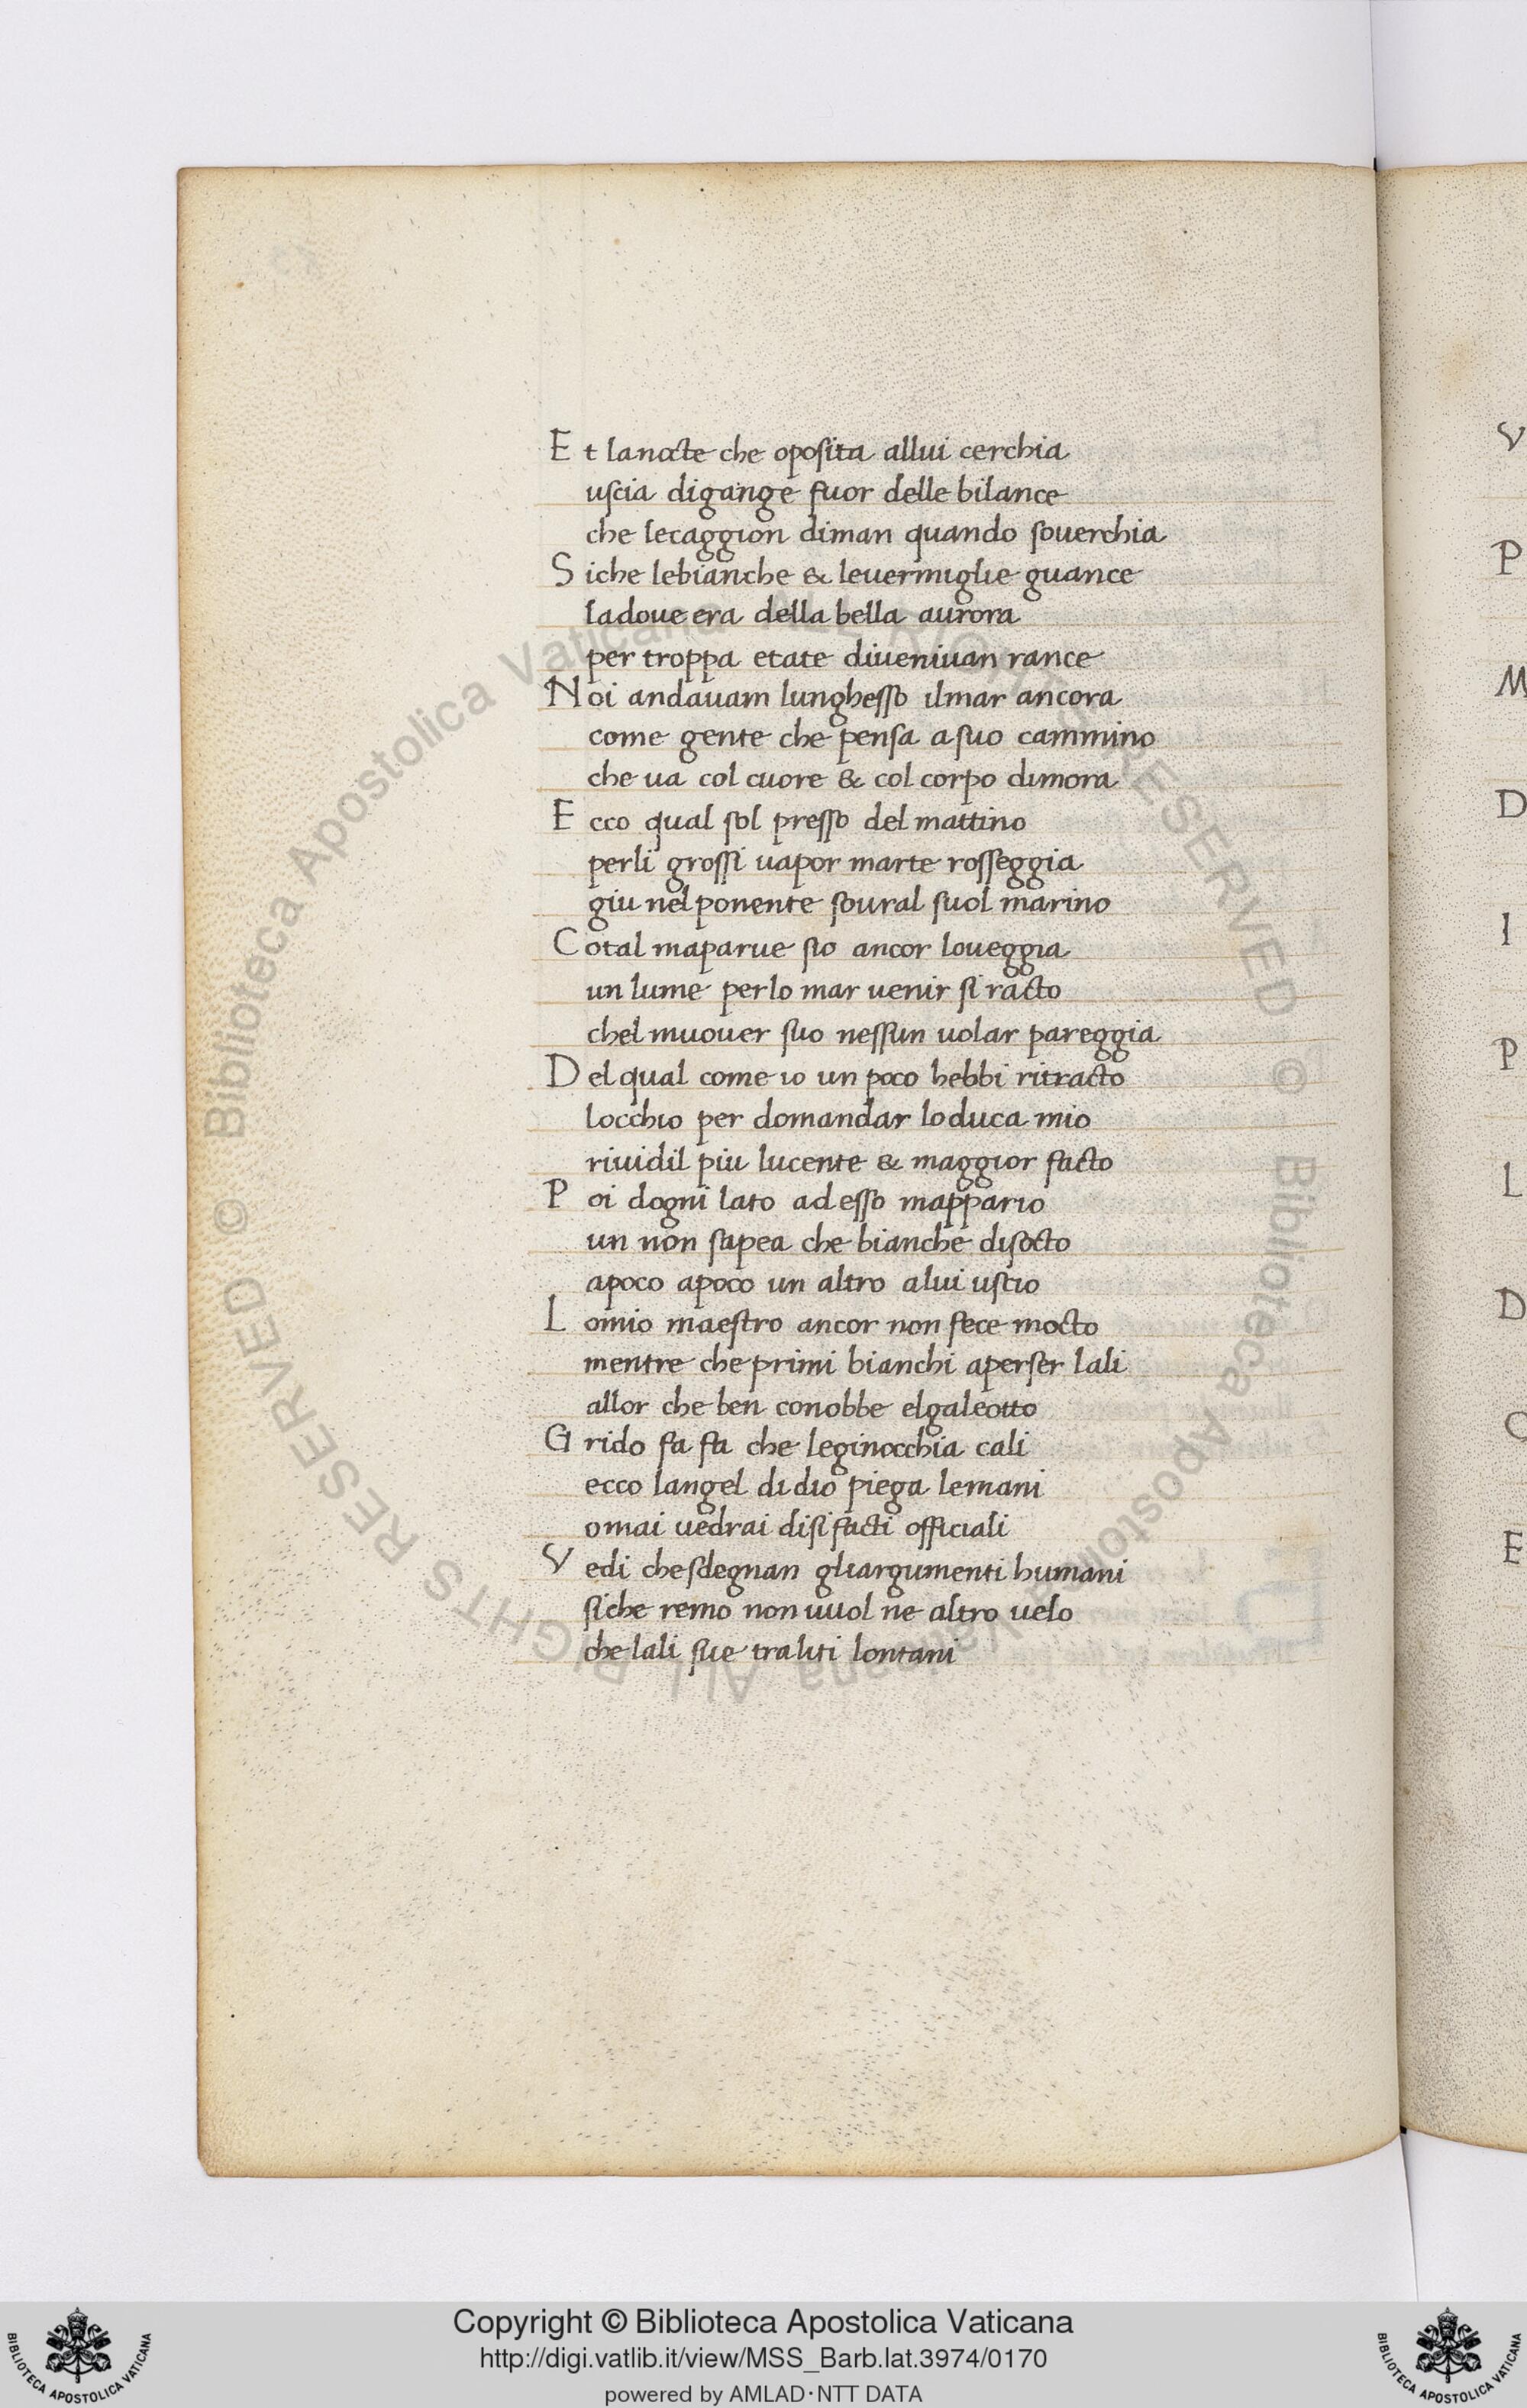 Et lanocte che oposita allui cerchia
uscia digange fuor delle bilance
che lecaggion diman quando souerchia
Siche lebianche & leuermiglie guance
ladoue era della bella aurora
per troppa etate diueniuan rance
Noi andauam lunghesso ilmar ancora
come gente che pensa asuo cammino
che ua col cuore & col corpo dimora
Ecco qual sol presso del mattino
perli grossi uapor marte rosseggia
giu nelponente soural suol marino
Cotal maparue sio ancor loueggia
un lume perlo mar uenir si racto
chel muouer suo nessun uolar pareggia
Delqual come io un poco hebbi ritracto
locchio per domandar loduca mio
riuidil piu lucente & maggior facto
Poi dogni lato adesso mappario
un non sapea che bianche disocto
apoco apoco un altro alui uscio
Lomio maestro ancor non fece mocto
mentre cheprimi bianchi aperser lali
allor che ben conobbe elgaleotto
Grido fa fa che leginocchia cali
ecco langel didio piega lemani
omai uedrai disifacti officiali
Vedi chesdegnan gliargumenti humani
siche remo non uuol ne altro uelo
che lali sue traliti lontani
V
P
M
D
I
P
L
D
C
E
Biblioteca Apostolica Vaticana ALL RIGHTS RESERVED ©
Biblioteca Apostolica Vaticana ALL RIGHTS RESERVED ©
Copyright © Biblioteca Apostolica Vaticana
http://digi.vatlib.it/view/MSS_Barb.lat.3974/0170
powered by AMLAD·NTT DATA
BIBLIOTECA APOSTOLICA VATICANA
BIBLIOTECA APOSTOLICA VATICANA